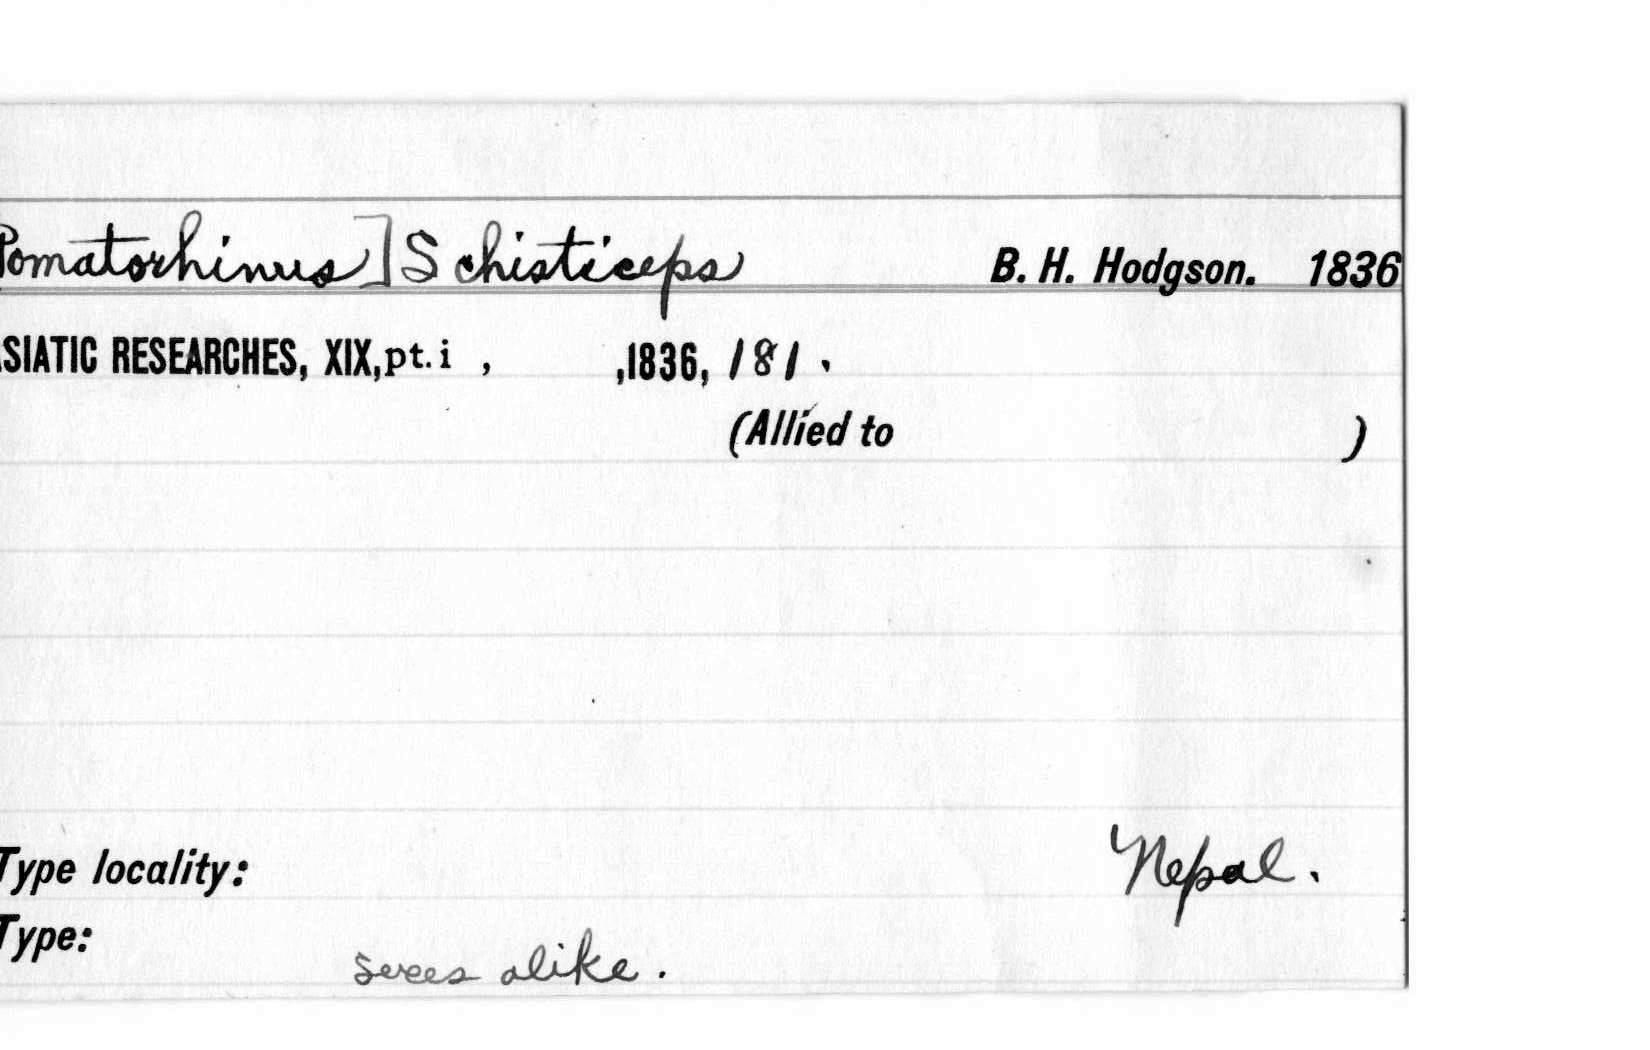 Pomatorhinus] Schisticeps B. H. Hodgson. 1836
SIATIC RESEARCHES, XIX, pt. i , ,1836, 181.
(Allied to )
Type locality: Nepal.
Type:
sexes alike.